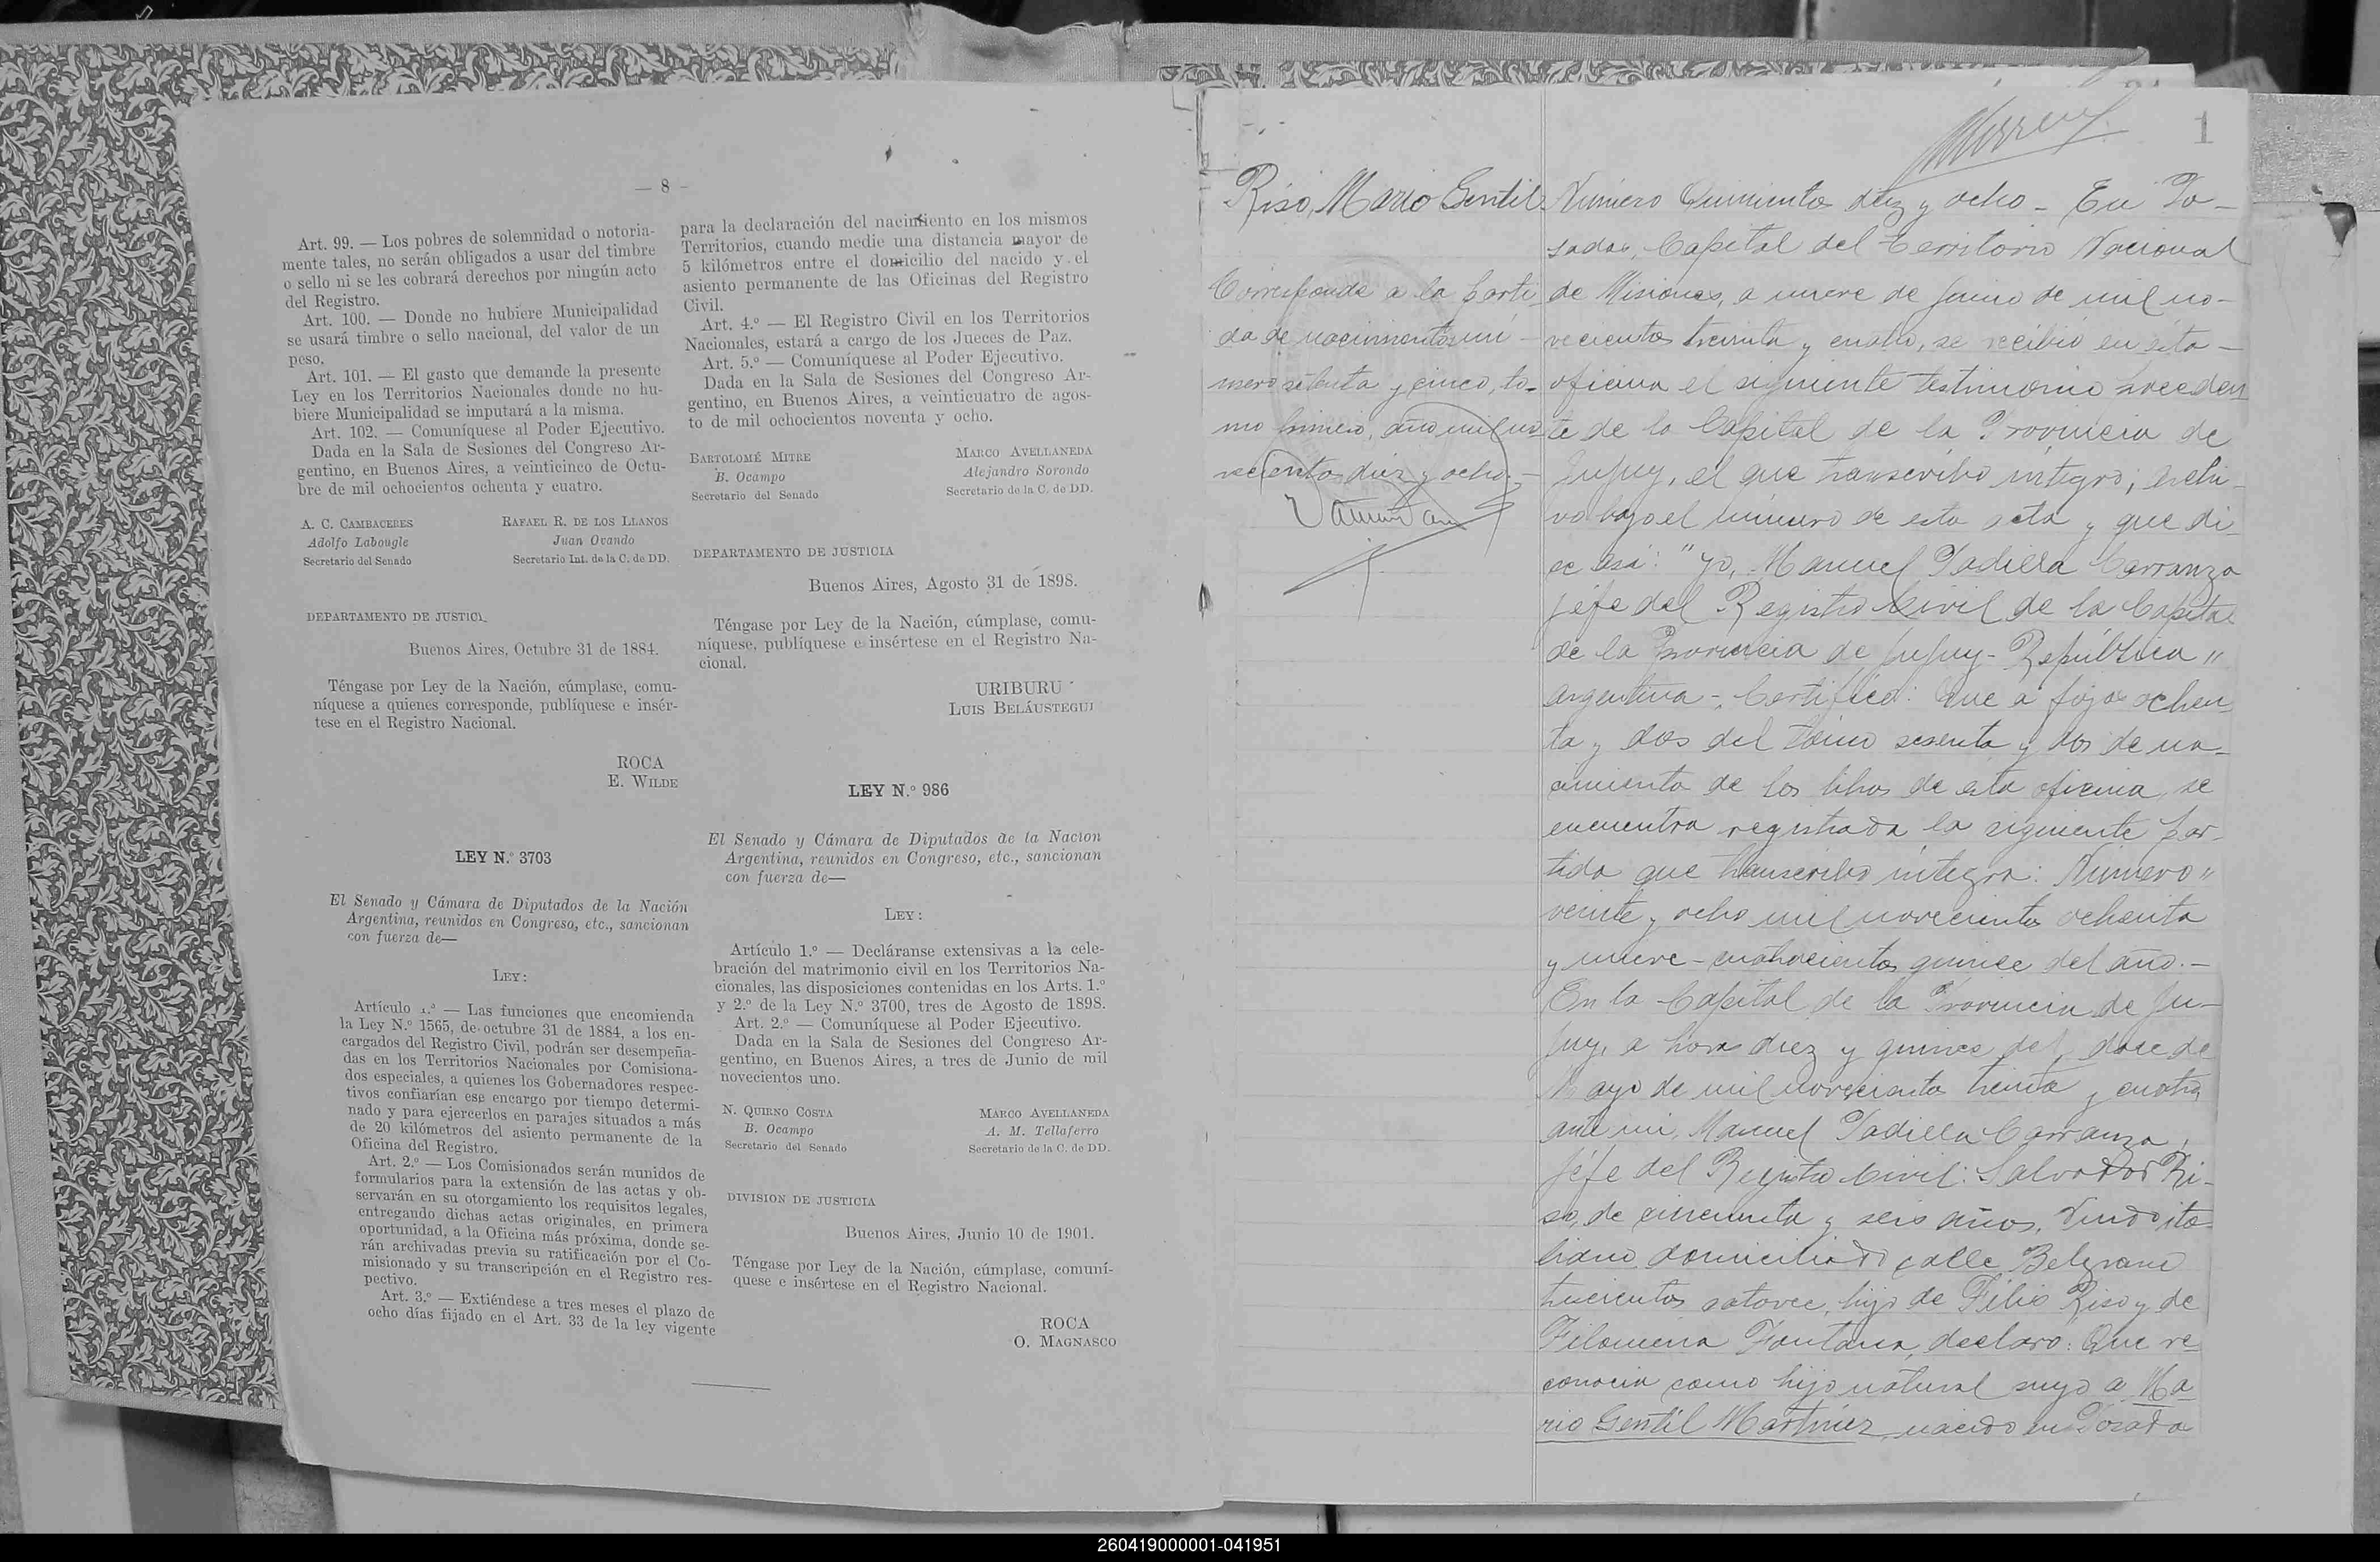 — 8 —
Art. 99. — Los pobres de solemnidad o notoria-
mente tales, no serán obligados a usar del timbre
o sello ni se les cobrará derechos por ningún acto
del Registro.
Art. 100. — Donde no hubiere Municipalidad
se usará timbre o sello nacional, del valor de un
peso.
Art. 101. — El gasto que demande la presente
Ley en los Territorios Nacionales donde no hu-
biere Municipalidad se imputará a la misma.
Art. 102. — Comuníquese al Poder Ejecutivo.
Dada en la Sala de Sesiones del Congreso Ar-
gentino, en Buenos Aires, a veinticinco de Octu-
bre de mil ochocientos ochenta y cuatro.
A. C. Cambaceres
Adolfo Labougle
Secretario del Senado
Rafael R. de los Llanos
Juan Ovando
Secretario Int. de la C. de DD.
DEPARTAMENTO DE JUSTICI
Buenos Aires, Octubre 31 de 1884.
Téngase por Ley de la Nación, cúmplase, comu-
níquese a quienes corresponde, publíquese e insér-
tese en el Registro Nacional.
ROCA
E. Wilde
LEY N.º 3703
El Senado y Cámara de Diputados de la Nación
Argentina, reunidos en Congreso, etc., sancionan
con fuerza de—
Ley:
Artículo 1.º — Las funciones que encomienda
la Ley N.º 1565, de octubre 31 de 1884, a los en-
cargados del Registro Civil, podrán ser desempeña-
das en los Territorios Nacionales por Comisiona-
dos especiales, a quienes los Gobernadores respec-
tivos confiarían ese encargo por tiempo determi-
nado y para ejercerlos en parajes situados a más
de 20 kilómetros del asiento permanente de la
Oficina del Registro.
Art. 2.º — Los Comisionados serán munidos de
formularios para la extensión de las actas y ob-
servarán en su otorgamiento los requisitos legales,
entregando dichas actas originales, en primera
oportunidad, a la Oficina más próxima, donde se-
rán archivadas previa su ratificación por el Co-
misionado y su transcripción en el Registro res-
pectivo.
Art. 3.º — Extiéndese a tres meses el plazo de
ocho días fijado en el Art. 33 de la ley vigente
para la declaración del nacimiento en los mismos
Territorios, cuando medie una distancia mayor de
5 kilómetros entre el domicilio del nacido y el
asiento permanente de las Oficinas del Registro
Civil.
Art. 4.º — El Registro Civil en los Territorios
Nacionales, estará a cargo de los Jueces de Paz.
Art. 5.º — Comuníquese al Poder Ejecutivo.
Dada en la Sala de Sesiones del Congreso Ar-
gentino, en Buenos Aires, a veinticuatro de agos-
to de mil ochocientos noventa y ocho.
Bartolomé Mitre
B. Ocampo
Secretario del Senado
Marco Avellaneda
Alejandro Sorondo
Secretario de la C. de DD.
DEPARTAMENTO DE JUSTICIA
Buenos Aires, Agosto 31 de 1898.
Téngase por Ley de la Nación, cúmplase, comu-
níquese, publíquese e insértese en el Registro Na-
cional.
URIBURU
Luis Beláustegui
LEY N.º 986
El Senado y Cámara de Diputados de la Nacion
Argentina, reunidos en Congreso, etc., sancionan
con fuerza de—
Ley:
Artículo 1.º — Decláranse extensivas a la cele-
bración del matrimonio civil en los Territorios Na-
cionales, las disposiciones contenidas en los Arts. 1.º
y 2.º de la Ley N.º 3700, tres de Agosto de 1898.
Art. 2.º — Comuníquese al Poder Ejecutivo.
Dada en la Sala de Sesiones del Congreso Ar-
gentino, en Buenos Aires, a tres de Junio de mil
novecientos uno.
N. Quirno Costa
B. Ocampo
Secretario del Senado
Marco Avellaneda
A. M. Tellaferro
Secretario de la C. de DD.
DIVISION DE JUSTICIA
Buenos Aires, Junio 10 de 1901.
Téngase por Ley de la Nación, cúmplase, comuní-
quese e insértese en el Registro Nacional.
ROCA
O. Magnasco
1
Riso, Mario Gentil
Corresponde a la parti-
da de nacimientos nú-
mero setenta y cinco, to-
mo primero, año mil no-
vecientos diez y ocho.-
Número Quinientos diez y ocho - En Po-
sadas, Capital del Territorio Nacional
de Misiones, a nueve de Junio de mil no-
vecientos treinta y cuatro, se recibió en ésta
oficina el siguiente testimonio proceden
te de la Capital de la Provincia de
Jujuy, el que transcribo íntegro; archi-
vo bajo el número de esta acta y que di-
ce así: "Yo, Manuel Padilla Carranza
jefe del Registro Civil de la Capital
de la Provincia de Jujuy - República "
Argentina - Certifico: Que a fojas ochen
ta y dos del tomo sesenta y dos de na-
cimiento de los libros de esta oficina, se
encuentra registrada la siguiente par-
tida que transcribo íntegra: Número "
veinte y ocho mil novecientos ochenta
y nueve - cuatrocientos quince del año.-
En la Capital de la Provincia de Ju-
juy, a hora diez y quince del doce de
Mayo de mil novecientos treinta y cuatro,
ante mi, Manuel Padilla Carranza,
Jéfe del Registro Civil: Salvador Ri-
so, de cincuenta y seis años, viudo ita-
liano, domiciliado calle Belgrano
trescientos catorce, hijo de Félix Riso y de
Filomena Fontana, declaro: Que re
conocia como hijo natural suyo a Ma
rio Gentil Martinez, nacido en Posada
260419000001-041951